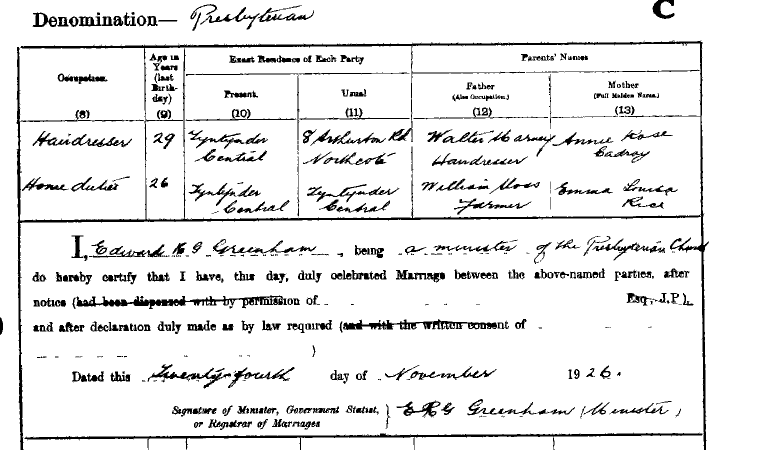 Denomination— Presbyterian
C
Occupation. Age in Years (last Birth-day) Exact Residence of Each Party Parents' Names
Present. Usual Father (Also Occupation.) Mother (Full Maiden Name.)
(8) (9) (10) (11) (12) (13)
Hairdresser 29 Tyntynder 8 Arthurton Rd Walter Annie Rose
Central Northcote Hairdresser
Home duties 26 Tyntynder Tyntynder William Moss Emma Louisa
Central Central Farmer Rice
I, Edward Greenham, being a minister of the Presbyterian Church
do hereby certify that I have, this day, duly celebrated Marriage between the above-named parties, after
notice (had been dispensed with by permission of Esq., J.P.),
and after declaration duly made as by law required (and with the written consent of
)
Dated this Twenty-fourth day of November 1926.
Signature of Minister, Government Statist, } E R G Greenham (Minister)
or Registrar of Marriages